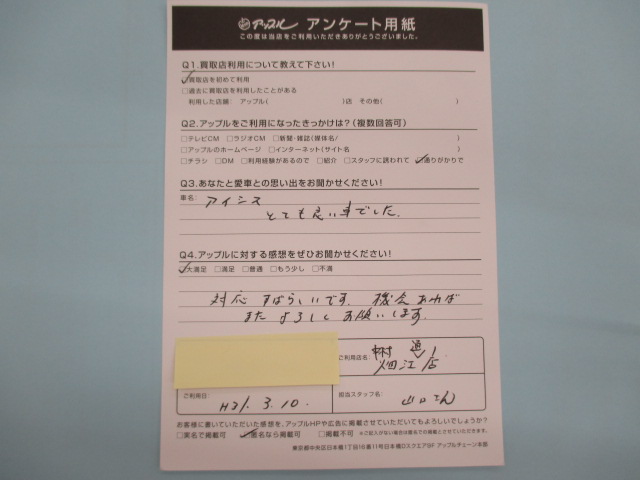 アップル アンケート用紙
この度は当店をご利用いただきありがとうございました。
Q1.買取店利用について教えて下さい!
☑買取店を初めて利用
□過去に買取店を利用したことがある
利用した店舗: アップル( )店 その他( )
Q2.アップルをご利用になったきっかけは?(複数回答可)
□テレビCM □ラジオCM □新聞・雑誌(媒体名/ )
□アップルのホームページ □インターネット(サイト名 )
□チラシ □DM □利用経験があるので □紹介 □スタッフに誘われて ☑通りがかりで
Q3.あなたと愛車との思い出をお聞かせください!
車名: アイシス
とても良い車でした。
Q4.アップルに対する感想をぜひお聞かせください!
☑大満足 □満足 □普通 □もう少し □不満
対応 すばらしいです。 機会あれば
また よろしく お願いします。
ご利用店名:
畑江通り店
ご利用日: H31.3.10.
担当スタッフ名: 山口さん
お客様に書いていただいた感想を、アップルHPや広告に掲載させていただいてもよろしいでしょうか?
□実名で掲載可 ☑匿名なら掲載可 □掲載不可 ※ご記入がない場合は匿名での掲載とさせていただきます。
東京都中央区日本橋1丁目16番11号日本橋DスクエアBF アップルチェーン本部